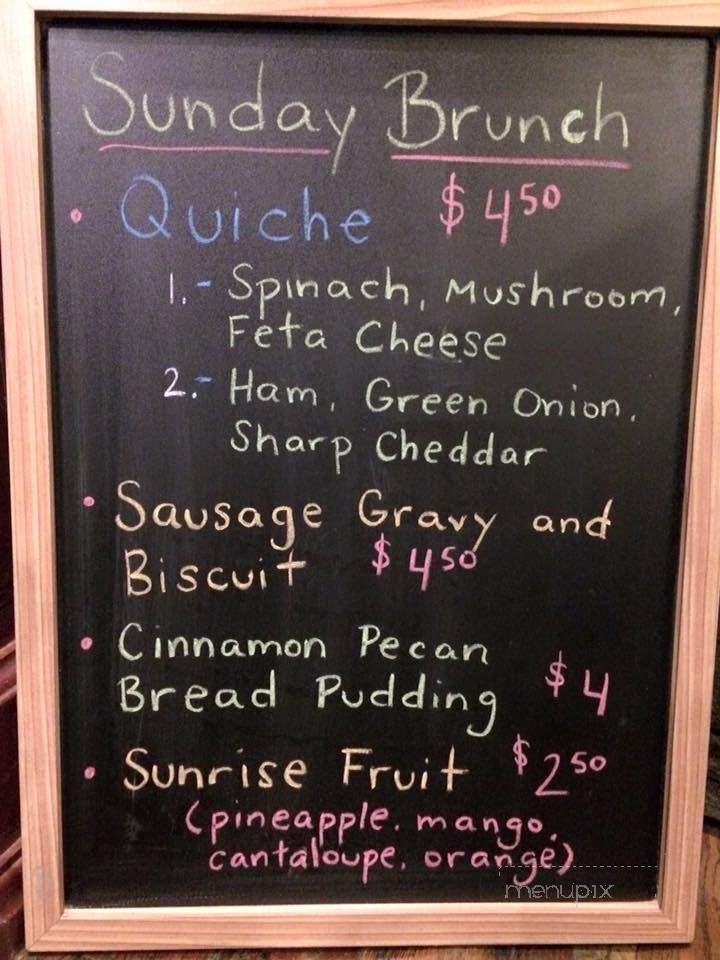 Sunday Brunch
• Quiche $4⁵⁰
1.- Spinach, Mushroom,
Feta Cheese
2.- Ham, Green Onion,
Sharp Cheddar
• Sausage Gravy and
Biscuit $4⁵⁰
• Cinnamon Pecan
Bread Pudding $4
• Sunrise Fruit $2⁵⁰
(pineapple, mango,
cantaloupe, orange)
menupix